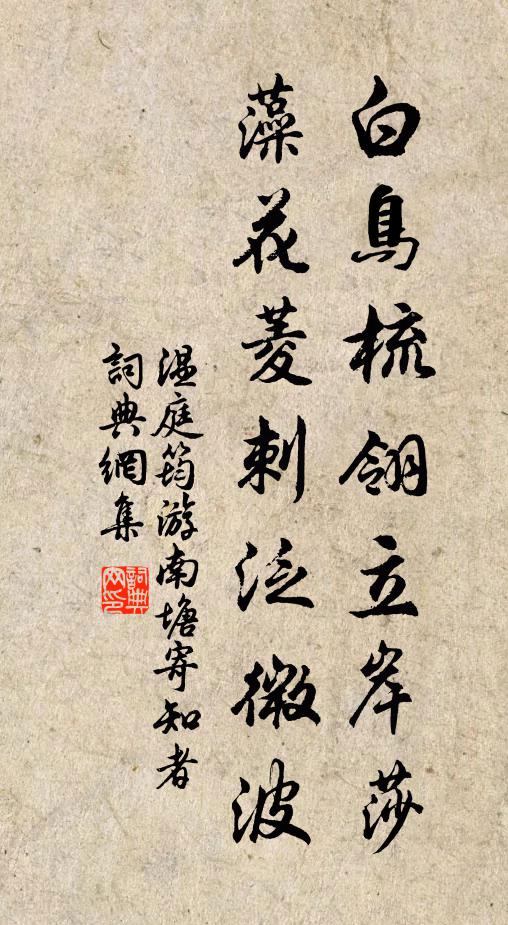 白鳥梳翎立岸莎
藻花菱刺泛微波
温庭筠游南塘寄知者
詞典網集
詞典網印